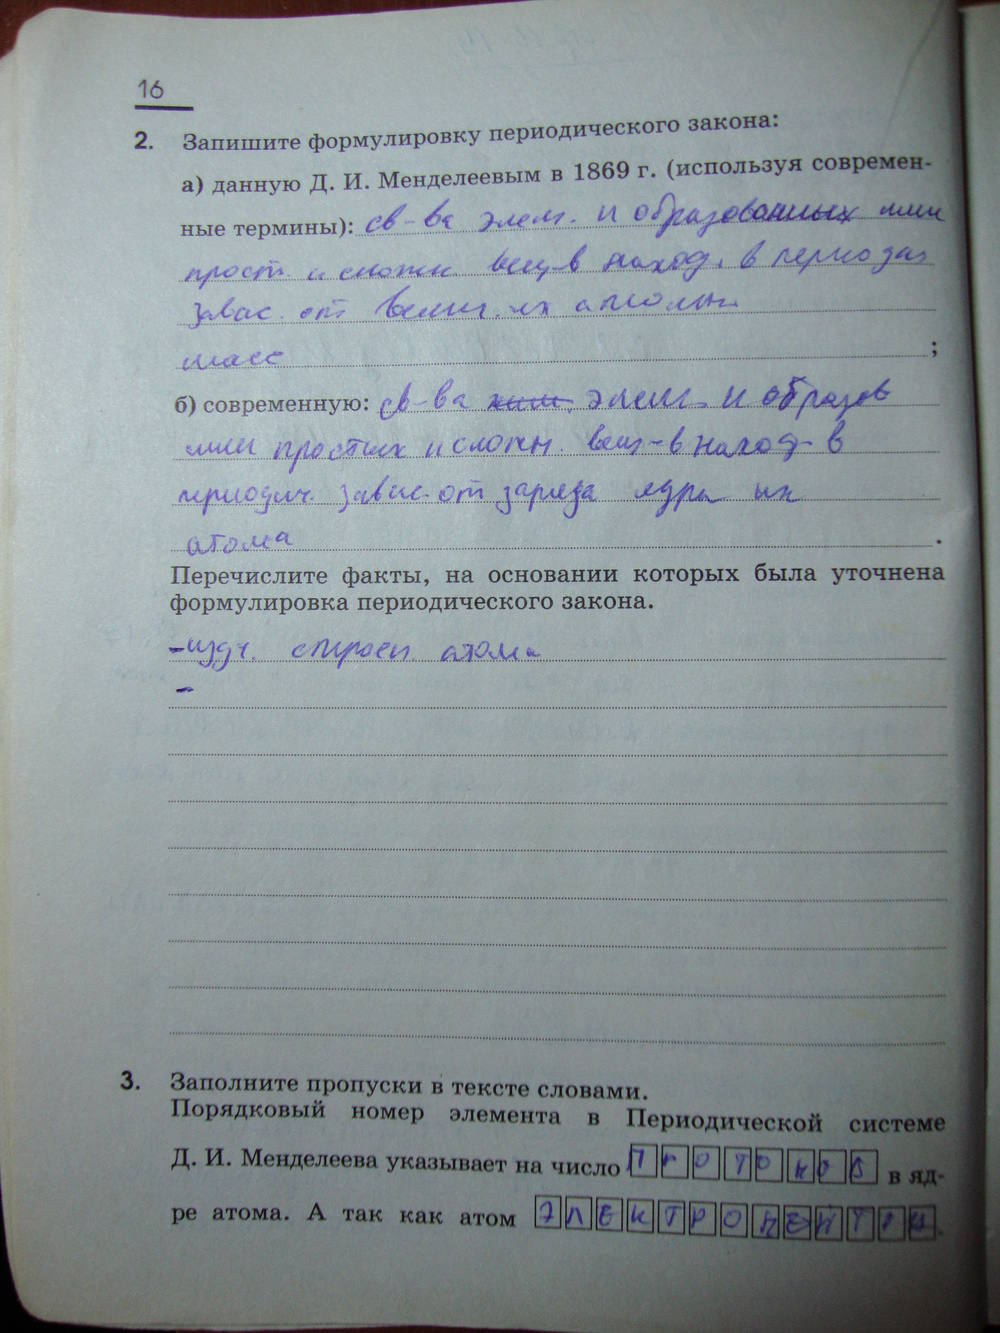 16
2. Запишите формулировку периодического закона:
а) данную Д. И. Менделеевым в 1869 г. (используя современ-
ные термины): св-ва элем. и образованных ими
прост. и сложн вещ-в наход. в период
завис. от велич. их атомн
масс ;
б) современную: св-ва хим. элем. и образов
ими простых и сложн. вещ-в наход-в
периодич. завис. от заряда ядра их
атома .
Перечислите факты, на основании которых была уточнена
формулировка периодического закона.
-изуч. строен. атома
-
3. Заполните пропуски в тексте словами.
Порядковый номер элемента в Периодической системе
Д. И. Менделеева указывает на число ПРОТОНОВ в яд-
ре атома. А так как атом ЭЛЕКТРОНЕЙТРА .